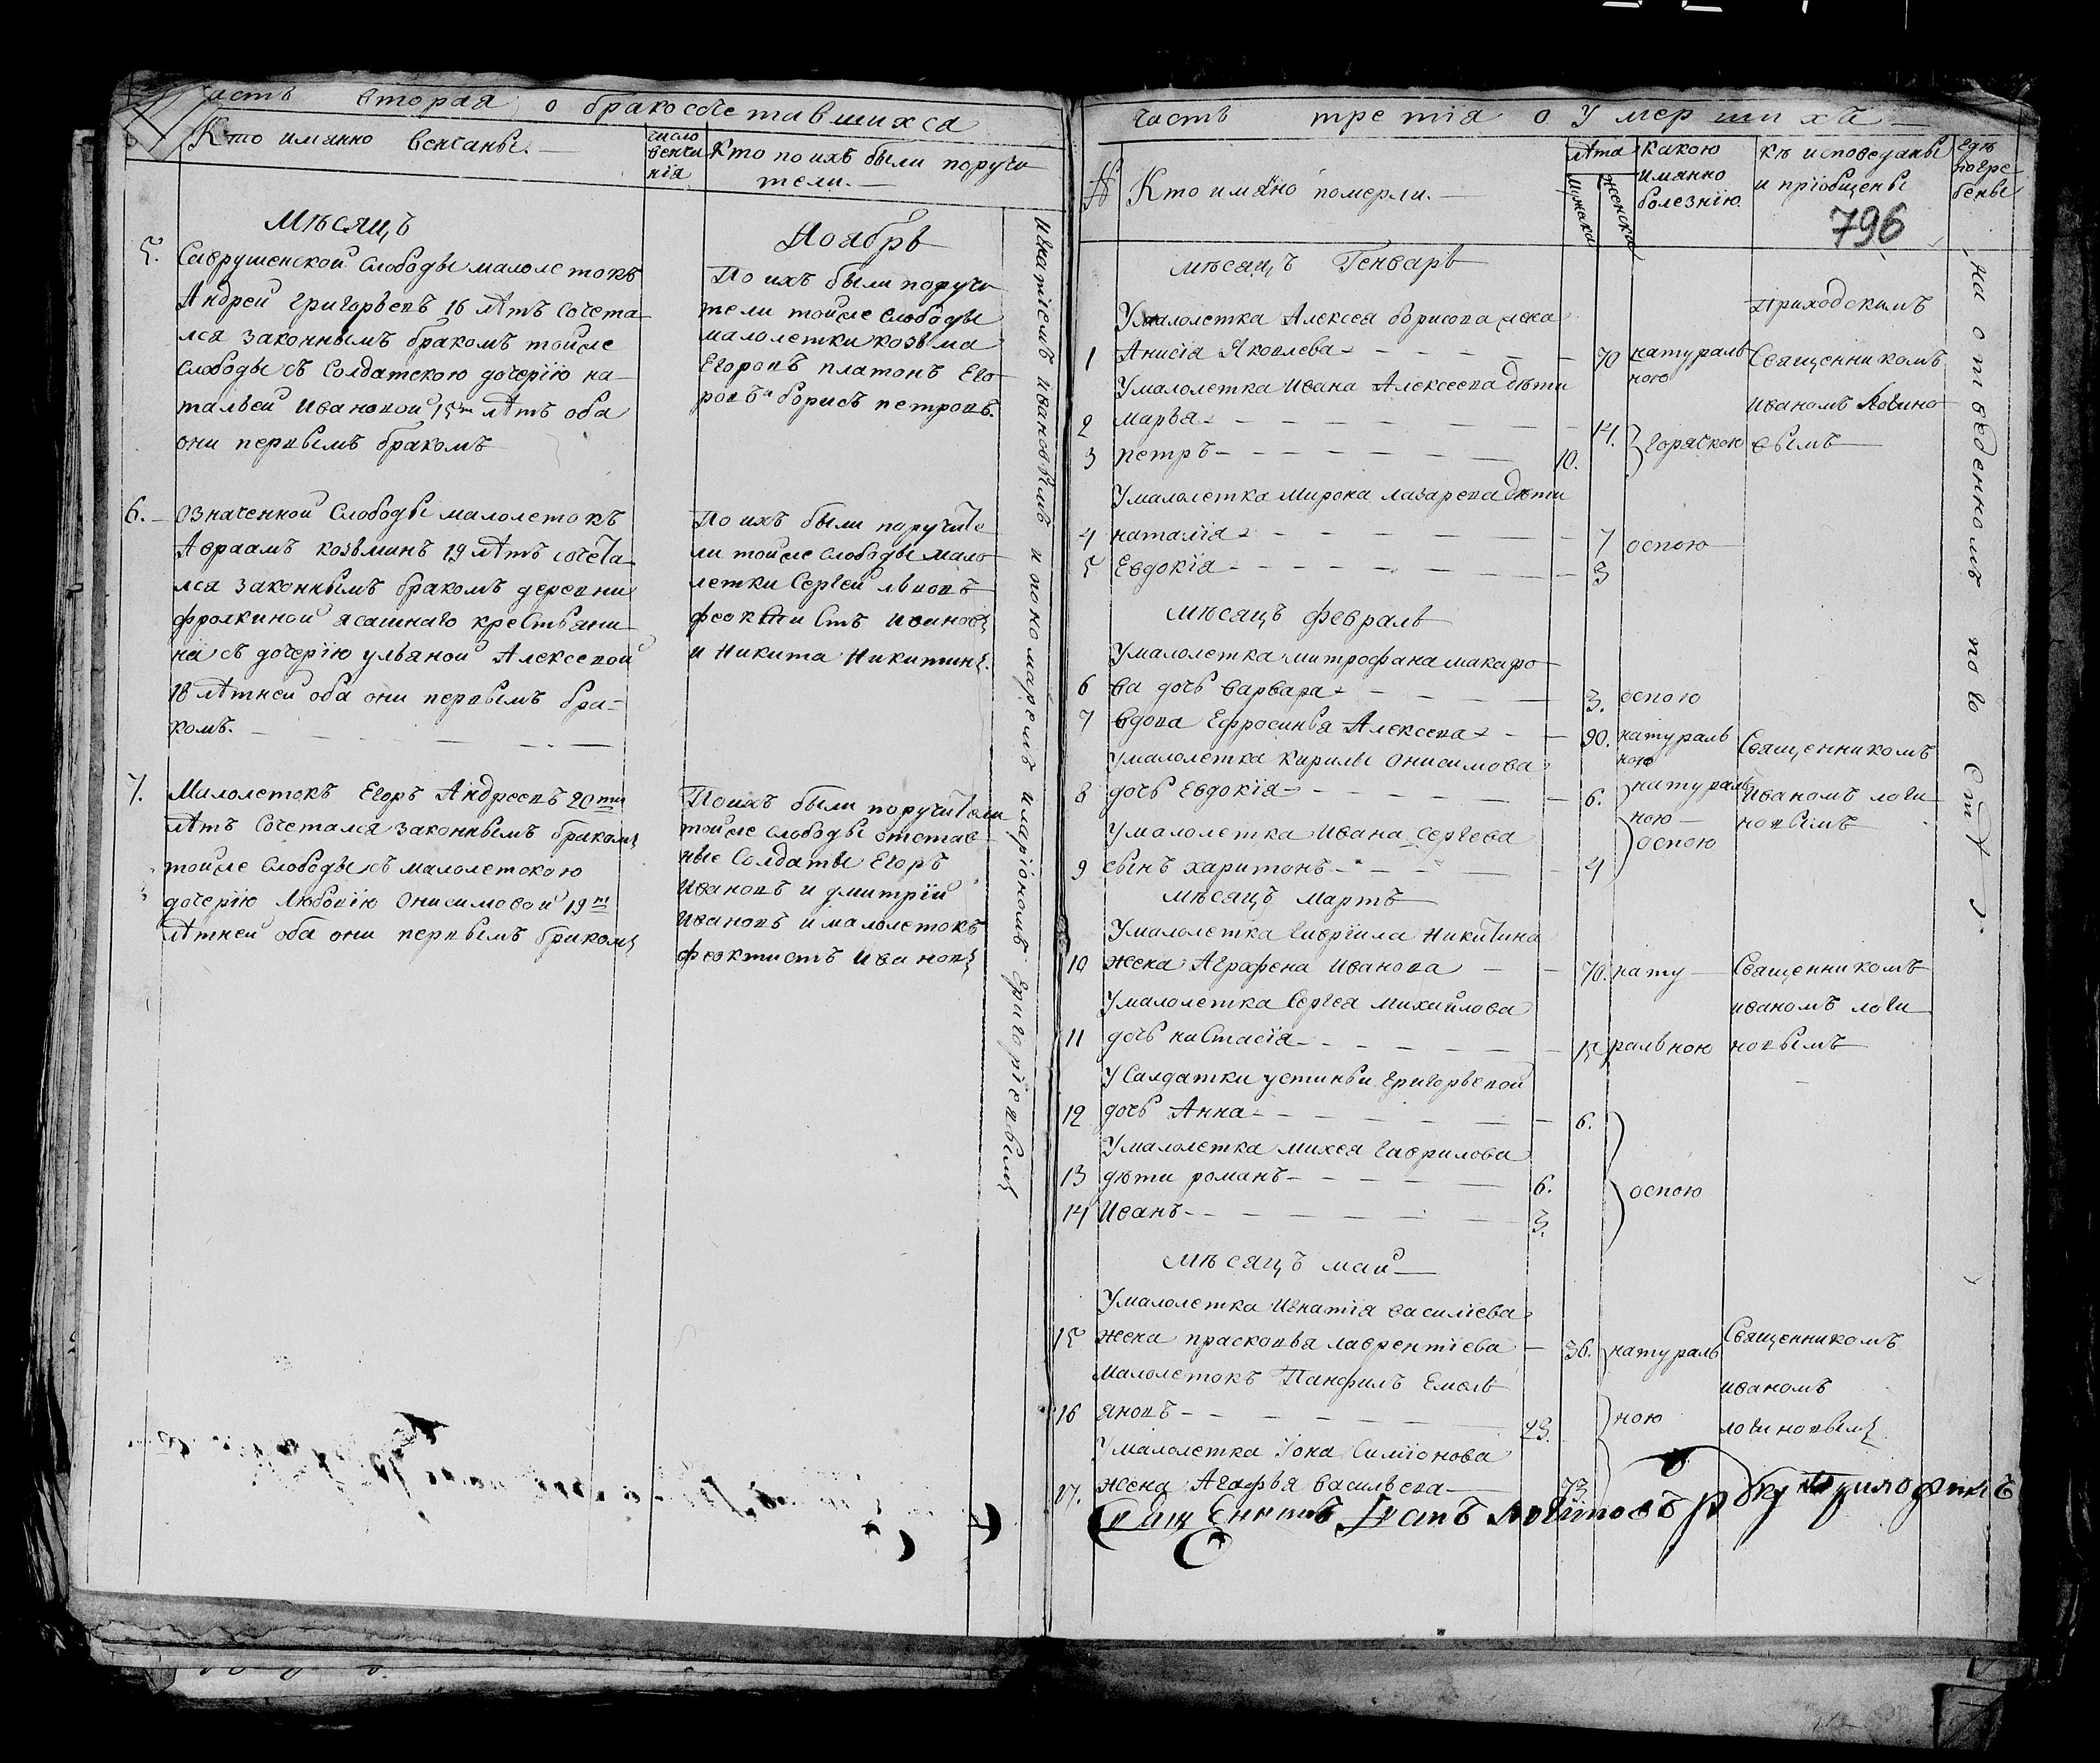 часть вторая о бракосочетавшихса
Кто имянно венчаны.
число венчания
Кто по ихъ были поручители.
Мѣсяцъ Ноябрь
5.
Саврушенской слободы малолетокъ
Андрей григорьевъ 16 лѣтъ сочета
лся законнымъ бракомъ тойже
слободы съ солдатскою дочерїю на
тальей Ивановой 15 лѣтъ оба
они первымъ бракомъ
По ихъ были поручи
тели тойже слободы
малолетки козьма
Егоровъ платонъ Его
ровъ и борисъ петровъ.
6.
означенной слободы малолетокъ
Авраамъ козьминъ 19 лѣтъ сочета
лся законнымъ бракомъ деревни
фролкиной ясашнаго крестьяни
на съ дочерїю ульяной Алексевой
18 лѣтней оба они первымъ бра=
комъ.
По ихъ были поручите
ли тойже слободы мало
летки Сергей львовъ
феоктистъ Ивановъ
и Никита Никитинъ.
7.
Малолетокъ Егоръ Андреевъ 20ти
лѣтъ сочетался законнымъ бракомъ
тойже слободы съ малолетскою
дочерїю Любовїю Онисимовой 19ти
лѣтней оба они первымъ бракомъ
По ихъ были поручители
тойже слободы отстав
ные солдаты Егоръ
Ивановъ и дмитрїй
Ивановъ и малолетокъ
феоктистъ Ивановъ
Игнатїемъ Ивановымъ и пономаремъ иларїономъ григорїевымъ
часть третїя о умершихъ
№
Кто имянно померли.
лѣта
мужска
женска
какою имянно болезнїю.
кѣ исповеданы и прїобщены
где погребены
796
мѣсяцъ Генварь
У малолетка Алексея борисова жена
1 Анисїя Яковлева 70 натуральною
Приходскимъ
Священникомъ
Иваномъ Логино
вымъ
У малолетка Ивана Алексеева дѣти
2 марья 14. горячкою
3 петръ 10.
У малолетка мирона лазарева дѣти
4 наталїя 7 оспою
5 Евдокїя 3
мѣсяцъ февраль
У малолетка митрофана макаро
6 ва дочь варвара 3. оспою
7 вдова Ефросинья Алексева 90. натуральною
Священникомъ
Иваномъ логи
новымъ
У малолетка кирилы Онисимова
8 дочь Евдокїя 6. натуральною
У малолетка Ивана Сергева
9 сынъ харитонъ 4 оспою
мѣсяцъ мартъ
У малолетка гаврїила Никитина
10 жена Аграфена Иванова 70. нату
Священникомъ
иваномъ логи
новымъ
У малолетка Сергея михайлова
11 дочь настасїя 15 ральною
У Салдатки устиньи григорьевой
12 дочь Анна 6.
У малолетка михея гаврилова
13 дѣти романъ 6. оспою
14 Иванъ 3.
мѣсяцъ май
У малолетка Игнатїя василїева
15 жена прасковья лаврентїева 36. натураль
Священникомъ
иваномъ
логиновымъ
малолетокъ Панфилъ Емель
16 яновъ 43. ною
У малолетка Їона Симїонова
17. жена Агафья васильева 73
На отведенномъ
Священникъ Іванъ логиновъ руку приложилъ